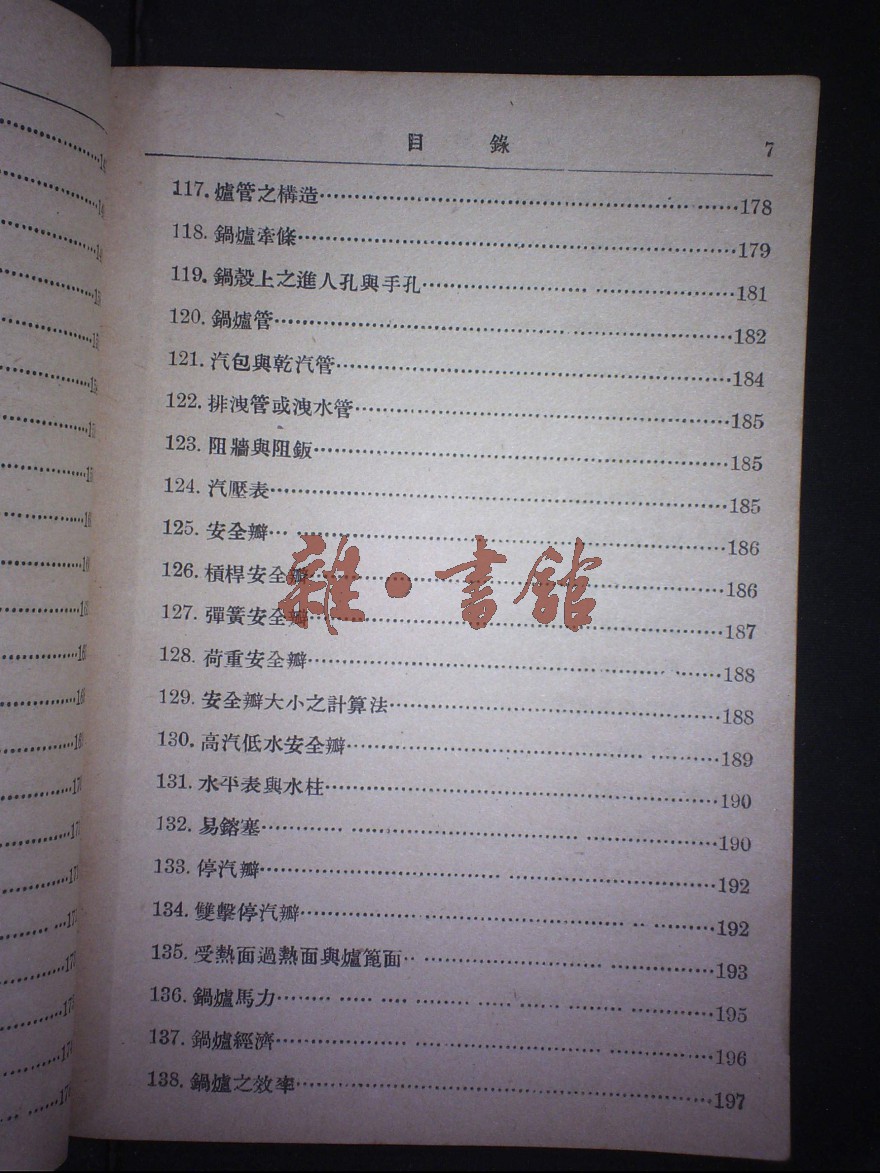 目 錄 7
117. 爐管之構造 178
118. 鍋爐牽條 179
119. 鍋殼上之進人孔與手孔 181
120. 鍋爐管 182
121. 汽包與乾汽管 184
122. 排洩管或洩水管 185
123. 阻牆與阻鈑 185
124. 汽壓表 185
125. 安全瓣 186
126. 槓桿安全瓣 186
127. 彈簧安全瓣 187
128. 荷重安全瓣 188
129. 安全瓣大小之計算法 188
130. 高汽低水安全瓣 189
131. 水平表與水柱 190
132. 易鎔塞 190
133. 停汽瓣 192
134. 雙擊停汽瓣 192
135. 受熱面過熱面與爐箆面 193
136. 鍋爐馬力 195
137. 鍋爐經濟 196
138. 鍋爐之效率 197
雜·書館